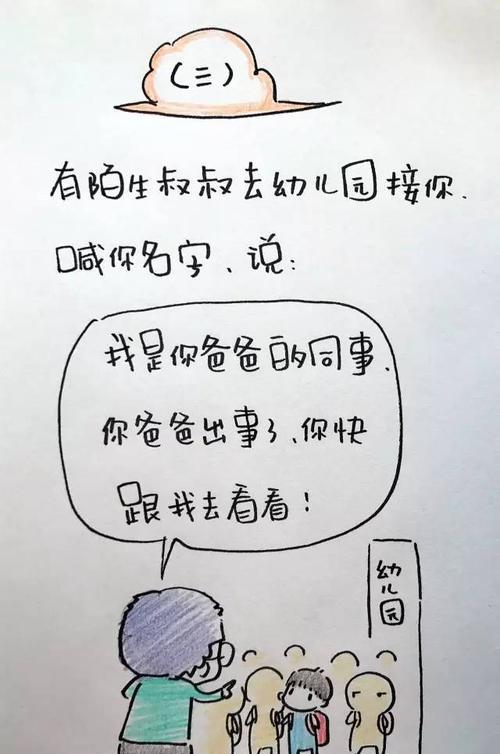 (三)
有陌生叔叔去幼儿园接你.
喊你名字、说:
我是你爸爸的同事.
你爸爸出事了、你快
跟我去看看!
幼儿园